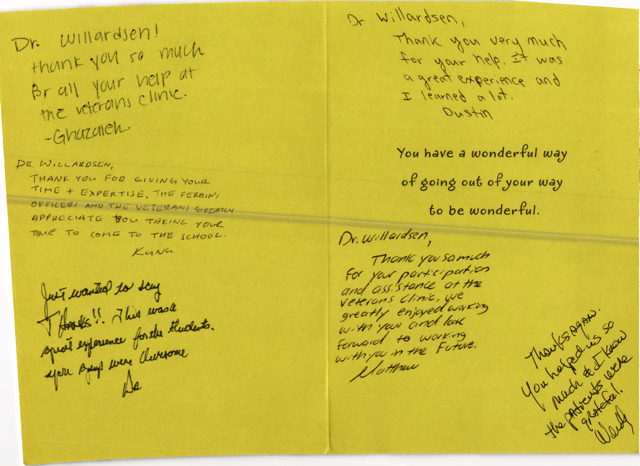 Dr. Willardsen!
thank you so much
for all your help at
the veterans clinic.
-Ghazaleh
DR WILLARDSEN,
THANK YOU FOR GIVING YOUR
TIME + EXPERTISE. THE
OFFICERS AND THE VETERANS GREATLY
APPRECIATE YOU TAKING YOUR
TIME TO COME TO THE SCHOOL.
KUNG
Just wanted to say
Thanks!! This was a
great experience for the students.
you guys were awesome
Dr Willardsen,
Thank you very much
for your help. It was
a great experience and
I learned a lot.
Dustin
You have a wonderful way
of going out of your way
to be wonderful.
Dr. Willardsen,
Thank you so much
For your participation
and assistance at the
veterans clinic. we
greatly enjoyed working
with you and look
Forward to working
with you in the Future.
Matthew
Thanks again.
You helped us so
much & I know
the patients were
grateful.
Wendy